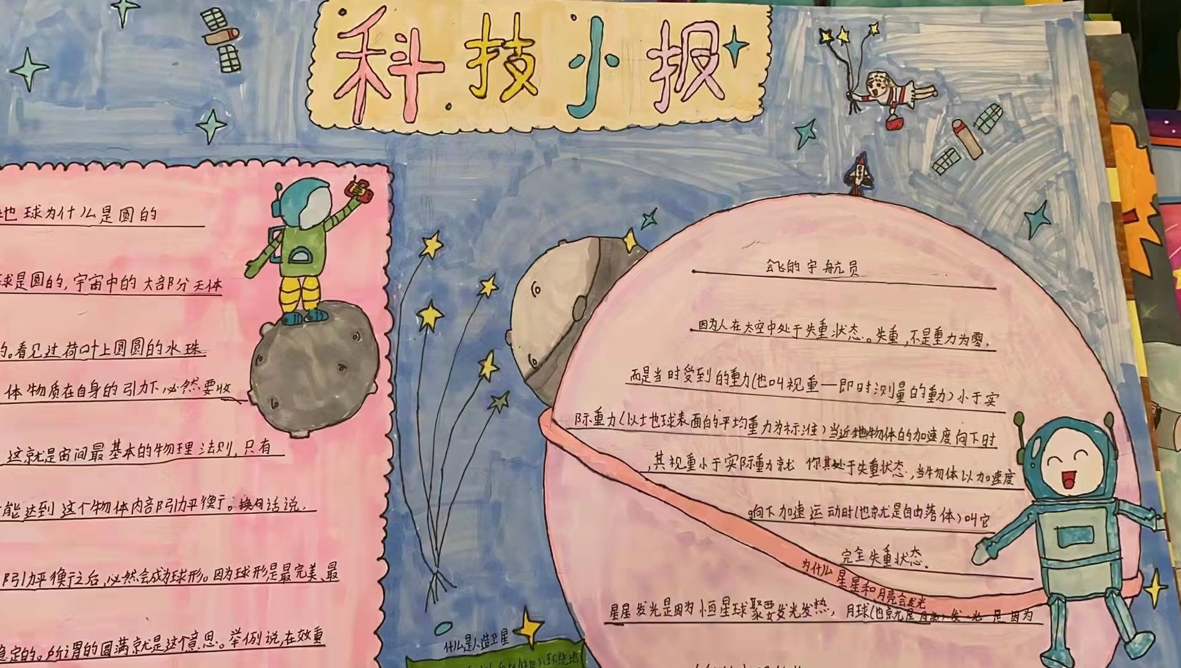 科技小报
地球为什么是圆的
球是圆的,宇宙中的大部分天体
的。看见过荷叶上圆圆的水珠
体物质在自身的引力下,必然要收
这就是宙间最基本的物理法则,只有
能达到这个物体内部引力平衡。换句话说,
引力平衡之后,必然会成为球形。因为球形是最完美、最
稳定的。所谓的圆满就是这个意思。举例说,在效重
会飞的宇航员
因为人在太空中处于失重状态。失重,不是重力为零,
而是当时受到的重力(也叫视重一即时测量的重力)小于实
际重力(以土也球表面的平均重力为标准)当近地物体的加速度向下时
,其视重小于实际重力就 处于失重状态,当物体以加速度
向下加速运动时(也就是自由落体)叫它
完全失重状态.
为什么星星和月亮会发光
星星发光是因为恒星球聚变发光发热,月球(也就是 因为
什么是人造卫星